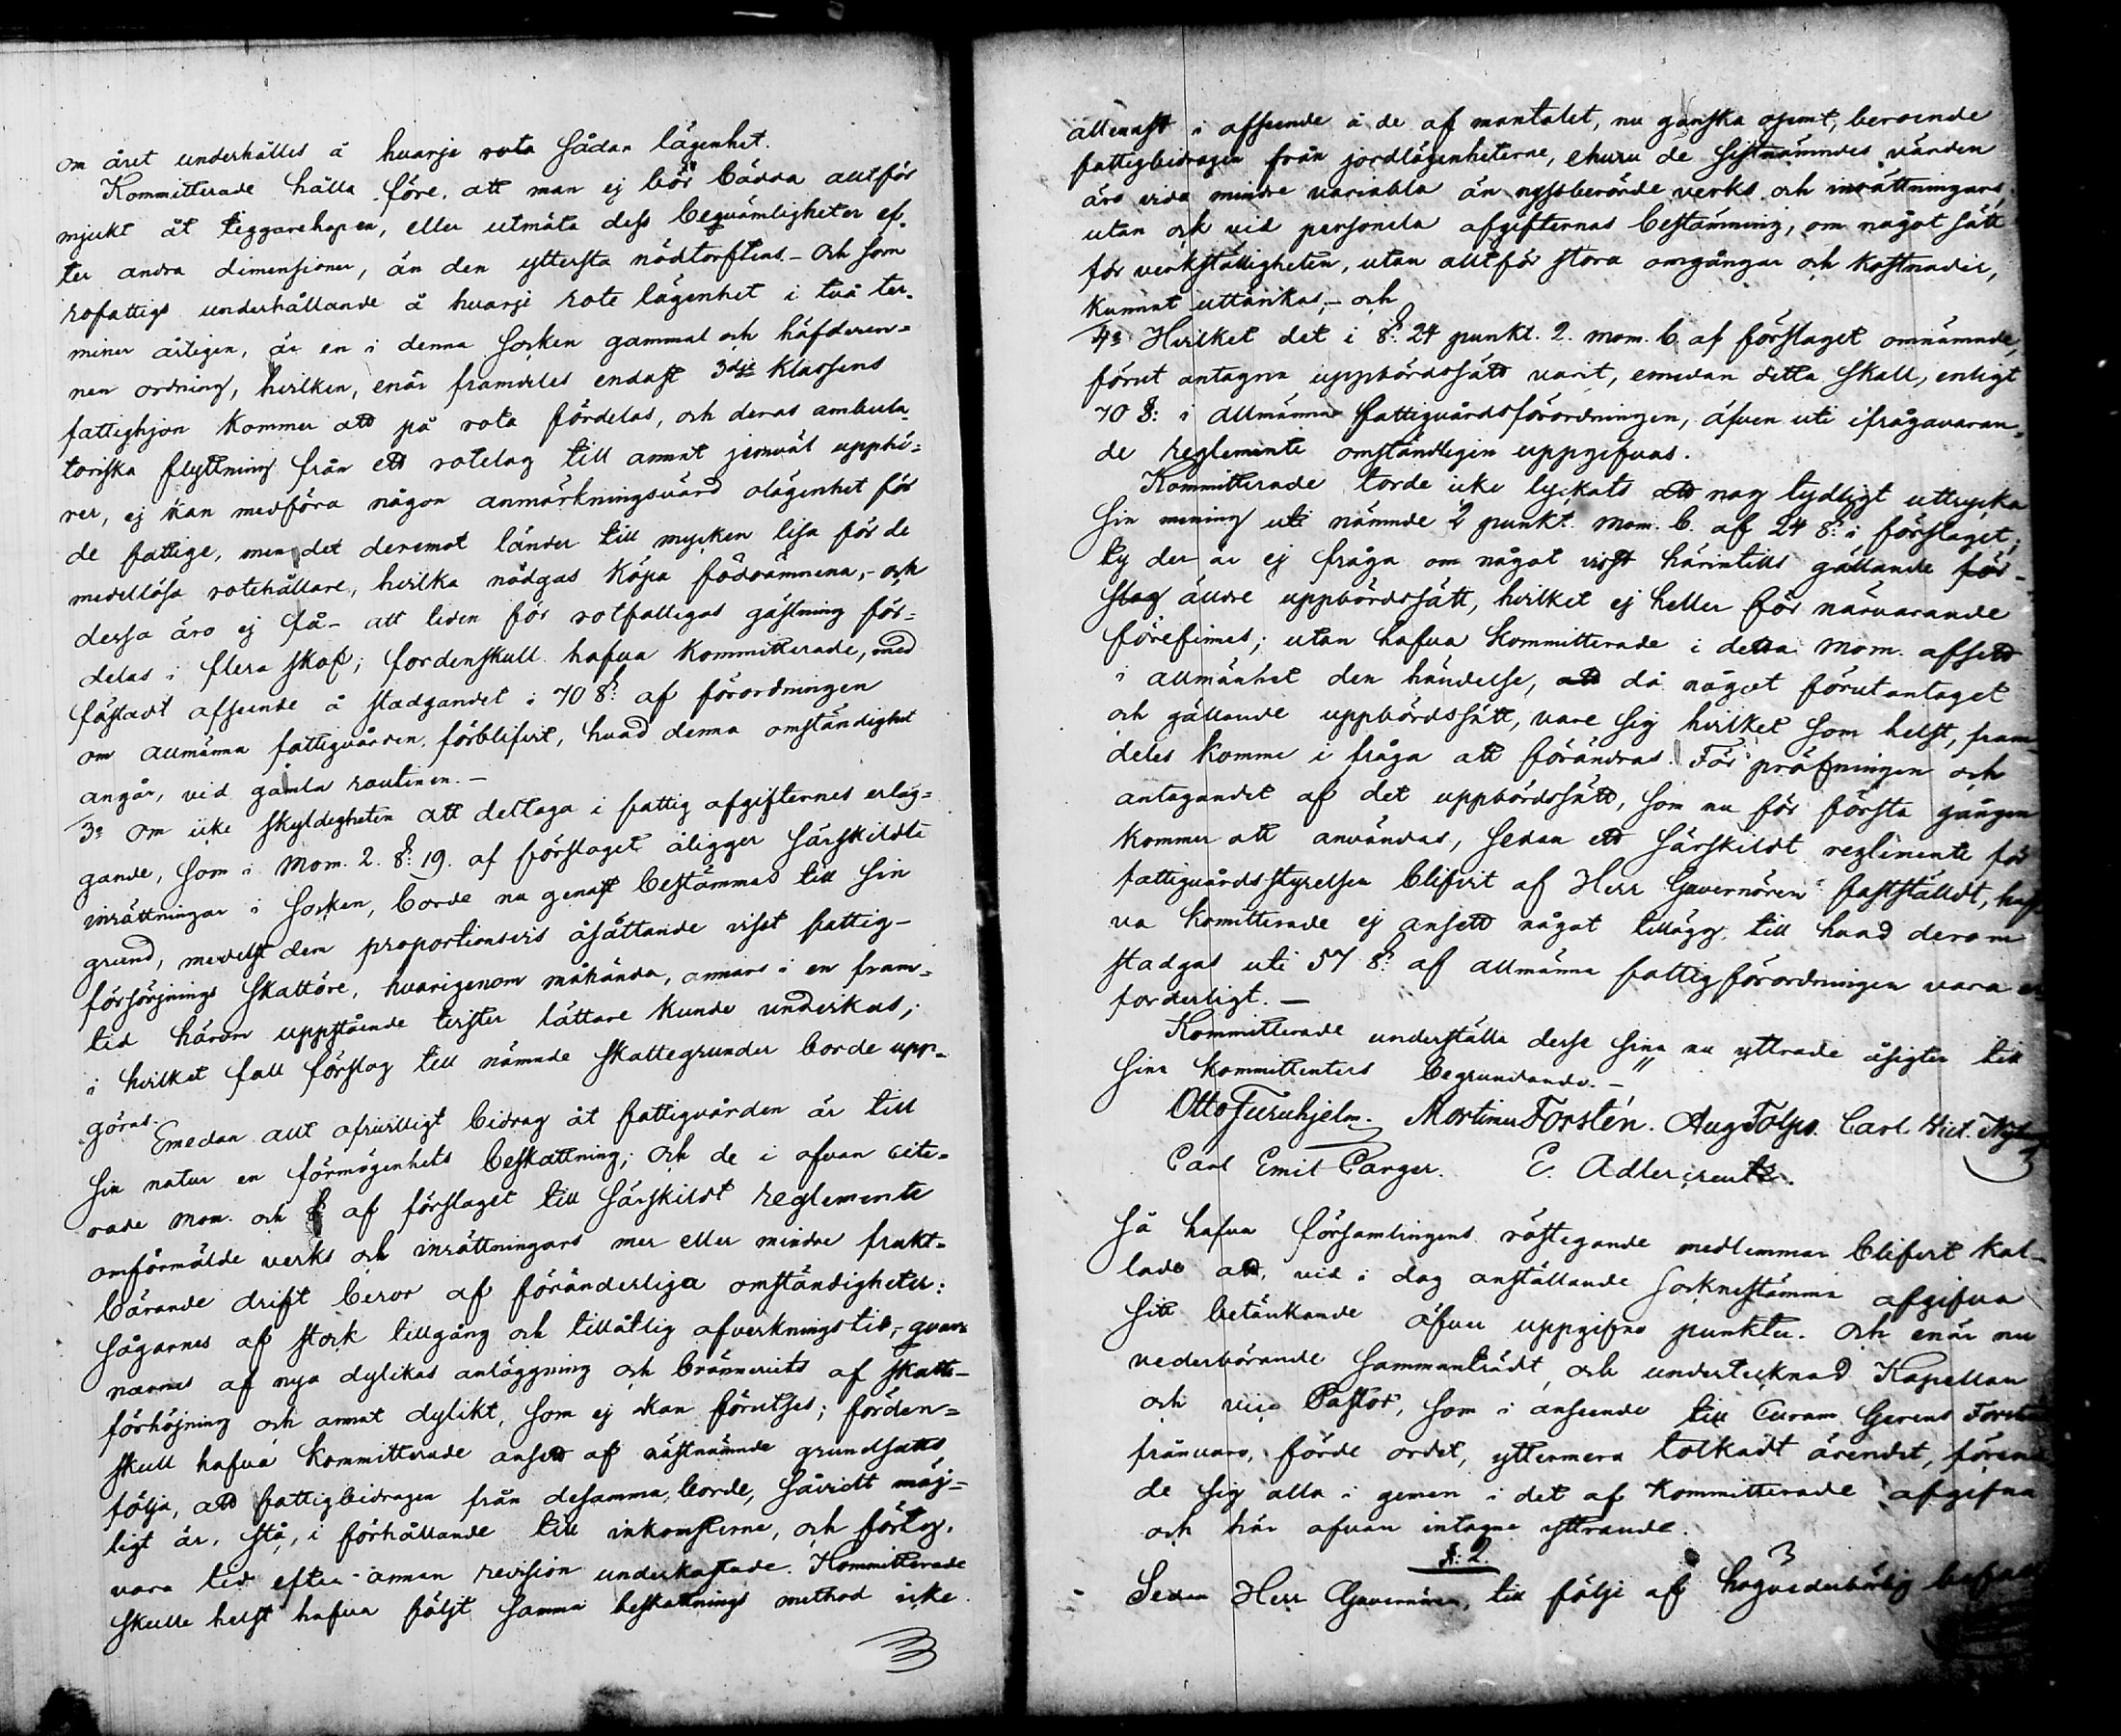 om året underhålles å hvarje rota sådan lägenhet.
Kommitterade hålla före, att man ej bör bädda alltför
mjukt åt tiggarehopen, eller utmäta dess beqvämligheter ef-
ter andra dimensioner, än den yttersta nödtorftens – Och som
rofattigs underhållande å hvarje rote lägenhet i två ter-
miner årligen, är en i denna socken gammal och häfderun-
nen ordning, hvilken, enär framdeles endast 3dje Klassens
fattighjon kommer att på rota fördelas, och deras ambula-
toriska flyttning från ett rotelag till annat jemväl upphö-
rer, ej kan medföra någon anmärkningsvärd olägenhet för
de fattige, men det deremot länder till mycken lisa för de
medellösa rotehållare, hvilka nödgas köpa födoämnena, – och
dessa äro ej få – att tiden för rotfattigas gästning för-
delas i flera skof; fordenskull hafva Kommitterade, med
fästadt afseende å stadgandet i 70 §: af förordningen
om allmänna fattigvården, förblifvit, hvad denna omständighet
angår, vid gamla routinen. –
3o Om icke skyldigheten att deltaga i fattig afgifternes erläg-
gande, som i Mom. 2. §: 19. af förslaget åligger särskildte
inrättningar i Socken, borde nu genast bestämmas till sin
grund, medelst den proportionsvis åsättande visst fattig-
försörjnings skattöre, hvarigenom måhända, annars i en fram-
tid härom uppstående tvister lättare kunde undvikas;
i hvilket fall förslag till nämnde skattegrunder borde upp-
göras.
Emedan allt ofrivilligt bidrag åt fattigvården är till
sin natur en förmögenhets beskattning; och de i ofvan cite-
rade Mom. och § af förslaget till särskildt reglemente
omförmälde verks och inrättningars mer eller mindre frukt-
bärande drift beror af föränderliga omständigheter:
sågarnes af stock tillgång och tillåtlig afverkningstid, – qvar-
narnes af nya dylikas anläggning och bränneriets af skatte-
förhöjning och annat dylikt, som ej kan förutses; förden-
skull hafva Kommitterade ansett af nästnämnde grundsatts
följa, att fattigbidragen från desamma, borde, såvidt möj-
ligt är, stå, i förhållande till inkomsterne, och förty,
vara tid efter annan revision underkastade. Kommitterade
skulle helst hafva följt samma beskattnings method icke
allenast i afseende å de af mantalet, nu ganska ojemt, beroende
fattigbidragen från jordlägenheterne, ehuru de sistnämndes värden
äro vida mindre variabla än nyssberörde verks och inrättningars,
utan ock vid personela afgifternas bestämming, om något sätt
för verkställigheten, utan alltför stora omgångar och kostnader,
kunnat uttänkas, – och
4o Hvilket det i §: 24 punkt. 2. mom. b. af förslaget omnämnde,
förut antagna uppbördssätt varit, emedan detta skall, enligt
70 §: i Allmänna Fattigvårdsförordningen, äfven uti ifrågavaran-
de reglemente omständligen uppgifvas.
Kommitterade torde icke lyckats att nog tydligt uttrycka
sin mening uti nämnde 2 punkt. mom. b. af 24 §: i förslaget;
ty der är ej fråga om något visst härintills gällande för-
slag äldre uppbördssätt, hvilket ej heller för närvarande
förefinnes; utan hafva Kommitterade i detta mom. afsett
i allmänhet den händelse, att då något förutantaget
och gällande uppbördssätt, vare sig hvilket som helst, fram-
deles komme i fråga att förändras. För pröfningen och
antagandet af det uppbördssätt, som nu för första gången
kommer att användas, sedan ett särskildt reglemente för
fattigvårdsstyrelsen blifvit af Herr Guvernören fastställdt, haf-
va Komitterade ej ansett något tillägg till hvad derom
stadgas uti 57 §: af allmänna fattigförordningen vara er
forderligt. –
Kommitterade underställa desse sina nu yttrade åsigter till
sina Kommittenters begrundande. –
Otto Furuhjelm. Mortimer Forstén. Aug Tolpo. Carl Vict.
Carl Emil Canger. E. Adlercreutz.
Så hafva församlingens röstegande medlemmar blifvit kal-
lade att, vid i dag anställande sockenstämma afgifva
sitt betänkande öfver uppgifne punkter. Och enär nu
vederbörande sammanträdt, och undertecknad Kapellan
och vice Pastor, som i anseende till Curam Gerens
frånvaro, förde ordet, yttermera tolkadt ärendet, förena-
de sig alla i gemen i det af Kommitterade afgifna
och här ofvan intagne yttrande.
§: 2.
Sedan Herr Guvernören, till följe af högvederbörlig